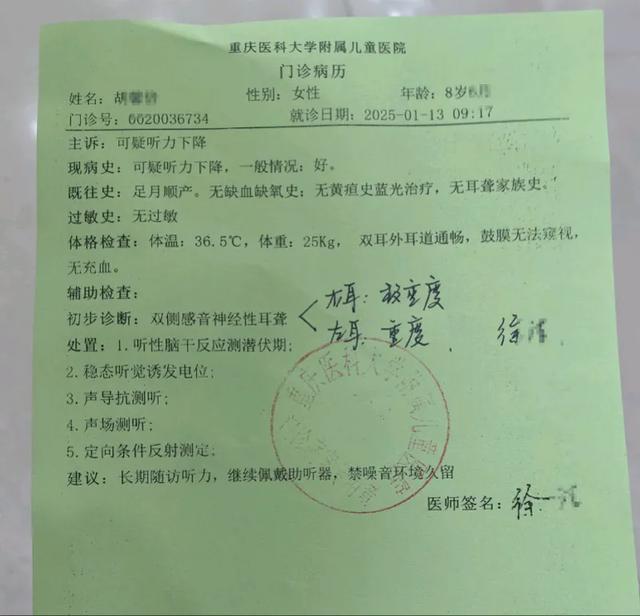 重庆医科大学附属儿童医院
门诊病历
姓名：胡 性别：女性 年龄：8岁
门诊号：6620036734 就诊日期：2025-01-13 09:17
主诉：可疑听力下降
现病史：可疑听力下降，一般情况：好。
既往史：足月顺产。无缺血缺氧史；无黄疸史蓝光治疗，无耳聋家族史。
过敏史：无过敏
体格检查：体温：36.5℃，体重：25Kg， 双耳外耳道通畅，鼓膜无法窥视，
无充血。
辅助检查：
右耳：极重度
初步诊断：双侧感音神经性耳聋
左耳：重度 徐
处置：1.听性脑干反应测潜伏期；
2.稳态听觉诱发电位；
3.声导抗测听；
4.声场测听；
5.定向条件反射测定；
建议：长期随访听力，继续佩戴助听器，禁噪音环境久留
医师签名：徐一
重庆医科大学附属儿童医院